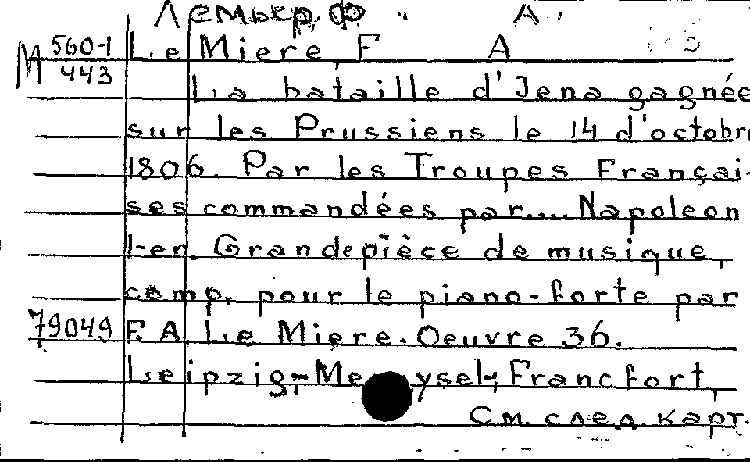 Лемьер, Ф. А.
М 560-1
443
Le Miere F A
La bataille d'Jena gagnée
sur les Prussiens le 14 d'octobr
1806. Par les Troupes Françai-
ses commandées par.... Napoleon
I-er. Grandepièce de musique,
comp. pour le piano-forte par
79049 F. A. Le Miere. Oeuvre 36.
Leipzig, Francfort,
См. след. карт.